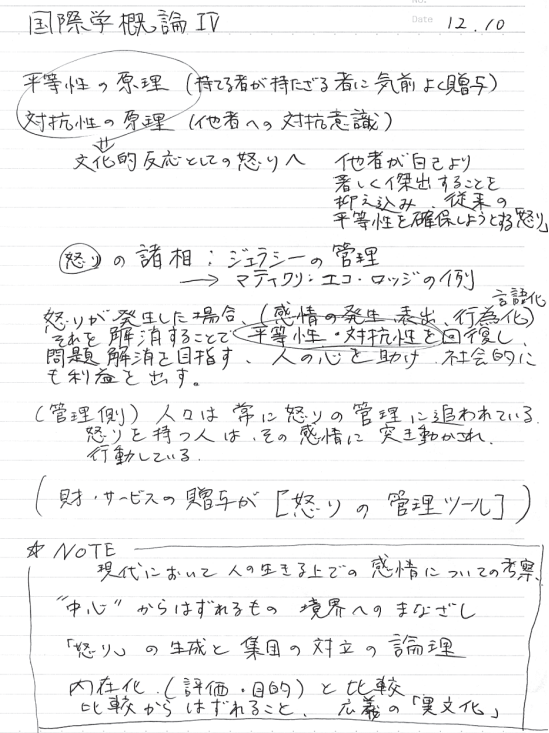 国際学概論 IV
No.
Date 12.10
平等性の原理 (持てる者が持たざる者に気前よく贈与)
対抗性の原理 (他者への対抗意識)
文化的反応としての怒りへ
他者が自己より
著しく傑出することを
抑え込み、従来の
平等性を確保しようとする「怒り」
怒りの諸相：ジェラシーの管理
→ マティクリ：エコ・ロッジの例
言語化
怒りが発生した場合、(感情の発生、表出、行為化)
それを解消することで平等性・対抗性を回復し、
問題解消を目指す、人の心を助け、社会的に
も利益を出す。
(管理側) 人々は常に怒りの管理に追われている。
怒りを持つ人は、その感情に突き動かされ、
行動している。
(財・サービスの贈与が [怒りの管理ツール])
☆ NOTE
現代において人の生きる上での感情についての考察、
"中心" からはずれるもの 境界へのまなざし
「怒り」の生成と集団の対立の論理
内在化.(評価・目的)と比較
比較からはずれること、広義の「異文化」